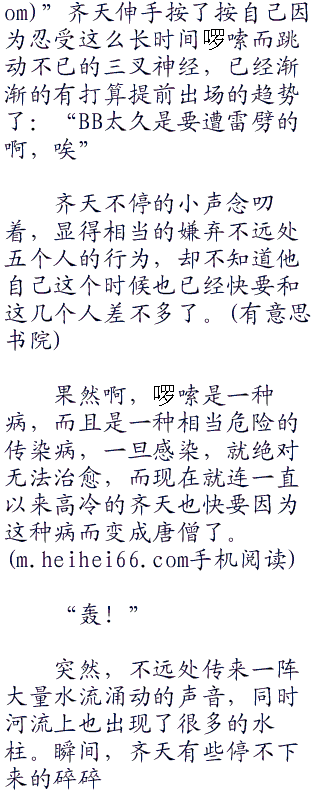 om)” 齐天伸手按了按自己因
为忍受这么长时间啰嗦而跳
动不已的三叉神经，已经渐
渐的有打算提前出场的趋势
了：“BB太久是要遭雷劈的
啊，唉”
齐天不停的小声念叨
着，显得相当的嫌弃不远处
五个人的行为，却不知道他
自己这个时候也已经快要和
这几个人差不多了。(有意思
书院)
果然啊，啰嗦是一种
病，而且是一种相当危险的
传染病，一旦感染，就绝对
无法治愈，而现在就连一直
以来高冷的齐天也快要因为
这种病而变成唐僧了。
(m.heihei66.com手机阅读)
“轰！”
突然，不远处传来一阵
大量水流涌动的声音，同时
河流上也出现了很多的水
柱。瞬间，齐天有些停不下
来的碎碎